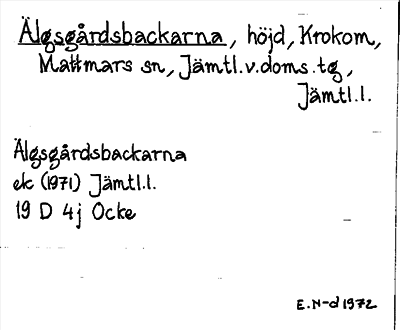 Älgsgårdsbackarna, höjd, Krokom,
Mattmars sn, Jämtl.v.doms.tg,
Jämtl.l.
Älgsgårdsbackarna
ek (1971) Jämtl.l.
19 D 4j Ocke
E.N-d 1972